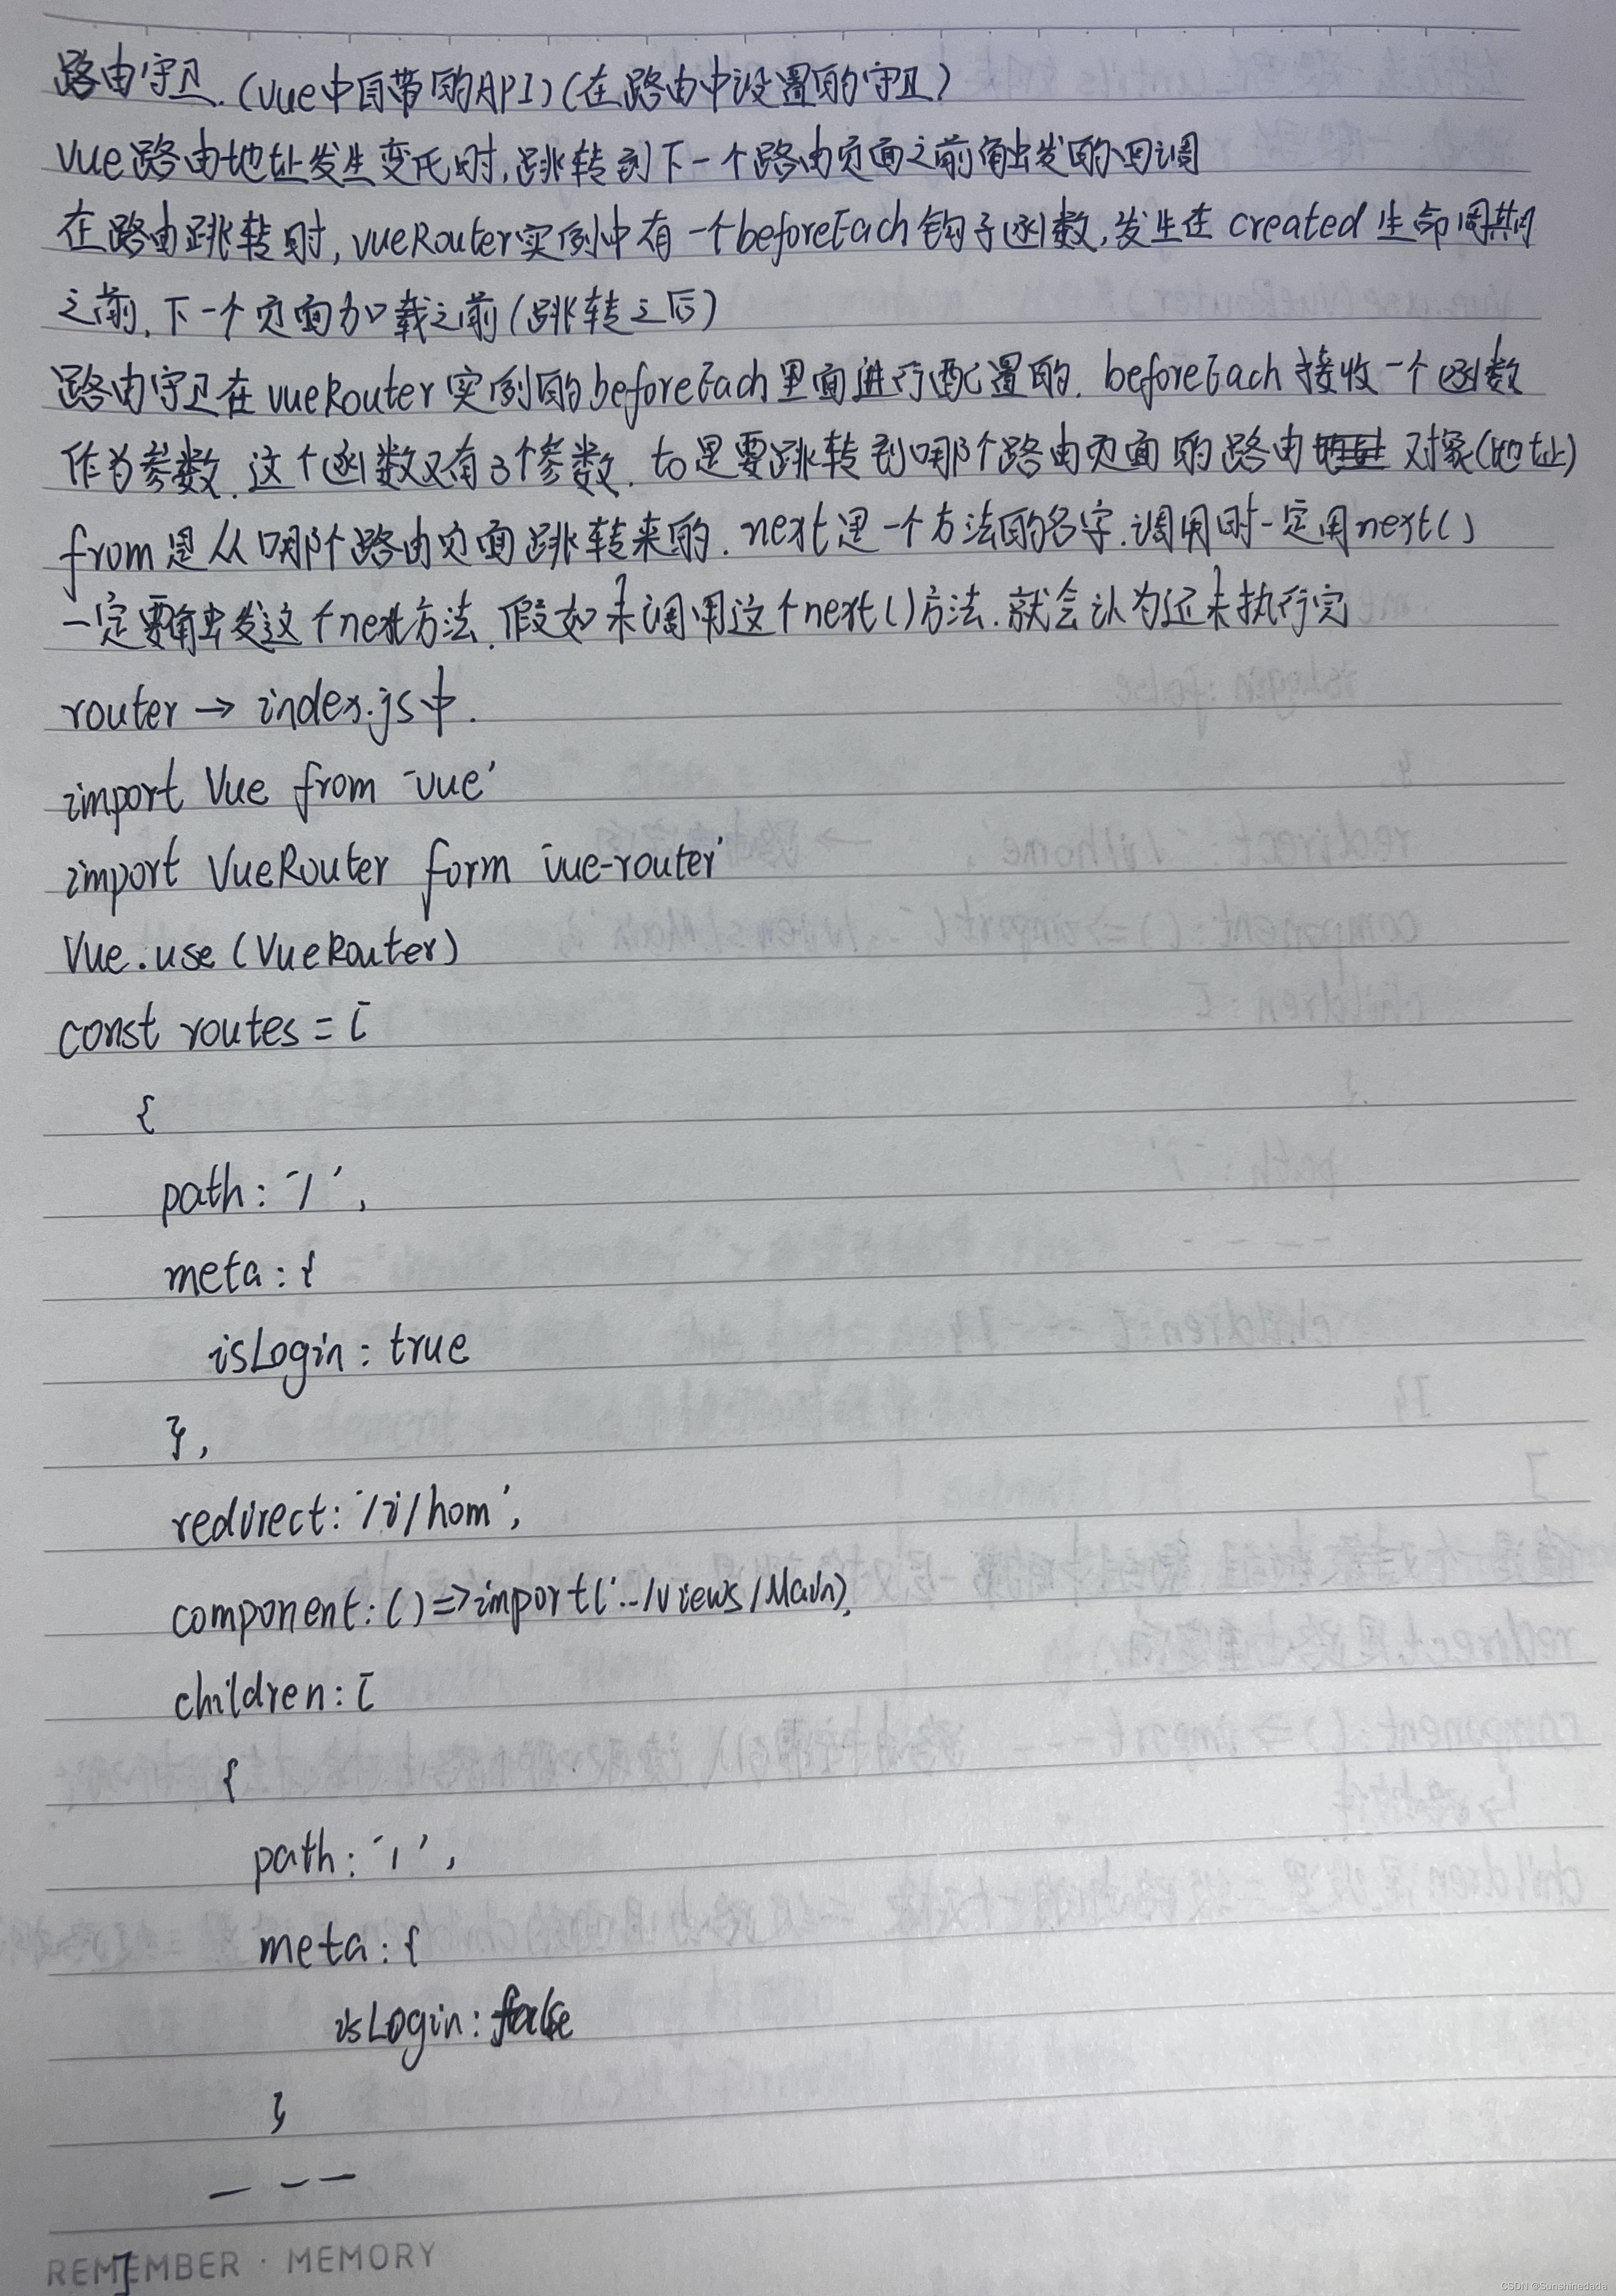 路由守卫.(Vue中自带的API)(在路由中设置的守卫)
Vue路由地址发生变化时,跳转到下一个路由页面之前触发的回调
在路由跳转时,VueRouter实例中有一个beforeEach钩子函数,发生在created生命周期
之前,下一个页面加载之前(跳转之后)
路由守卫在VueRouter实例的beforeEach里面进行配置的.beforeEach接收一个函数
作为参数.这个函数又有3个参数.to是要跳转到哪个路由页面的路由对象(地址)
from是从哪个路由页面跳转来的.next是一个方法的名字.调用时一定用next()
一定要触发这个next方法.假如未调用这个next()方法.就会认为还未执行完
router→index.js中.
import Vue from 'vue'
import VueRouter form 'vue-router'
Vue.use(VueRouter)
const routes=[
{
path:'/',
meta:{
isLogin:true
},
redirect:'/i/hom',
component:()=>import('../views/Main),
children:[
{
path:'i',
meta:{
isLogin:false
}
— — —
]
REMEMBER · MEMORY
CSDN @Sunshinedada